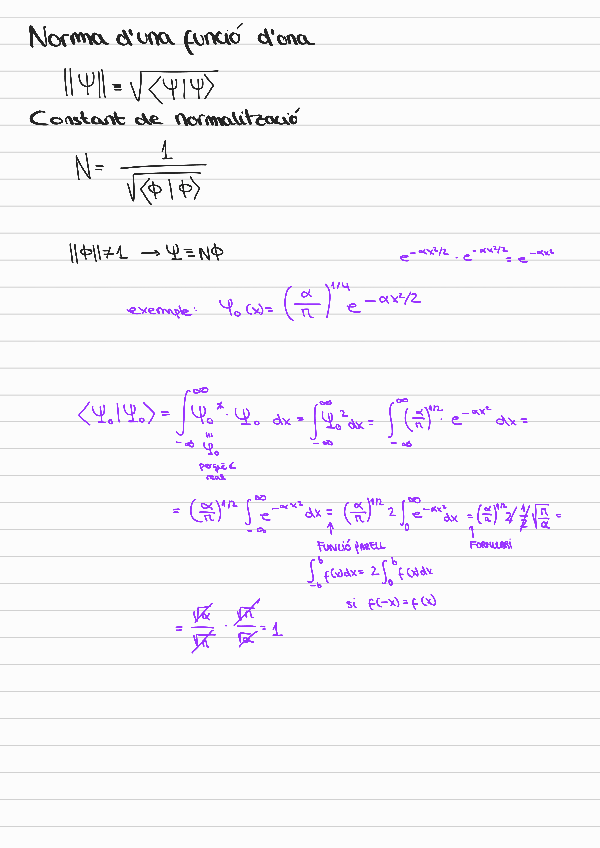 Norma d'una funció d'ona
||Ψ|| = √⟨Ψ|Ψ⟩
Constant de normalització
N = 1 / √⟨Φ|Φ⟩
||Φ|| ≠ 1 → Ψ ≡ NΦ
e^(-αx²/2) · e^(-αx²/2) = e^(-αx²)
exemple: Ψ₀(x) = (α/π)^(1/4) e^(-αx²/2)
⟨Ψ₀|Ψ₀⟩ = ∫_(-∞)^(∞) Ψ₀* · Ψ₀ dx = ∫_(-∞)^(∞) Ψ₀² dx = ∫_(-∞)^(∞) (α/π)^(1/2) · e^(-αx²) dx =
≡ Ψ₀
perquè
real
= (α/π)^(1/2) ∫_(-∞)^(∞) e^(-αx²) dx = (α/π)^(1/2) 2 ∫_0^(∞) e^(-αx²) dx = (α/π)^(1/2) 2 1/2 √(π/α) =
↑ FUNCIÓ PARELL
↑ FORMULARI
∫_(-b)^(b) f(x)dx = 2 ∫_0^(b) f(x)dx
si f(-x) = f(x)
= √α/√π · √π/√α = 1